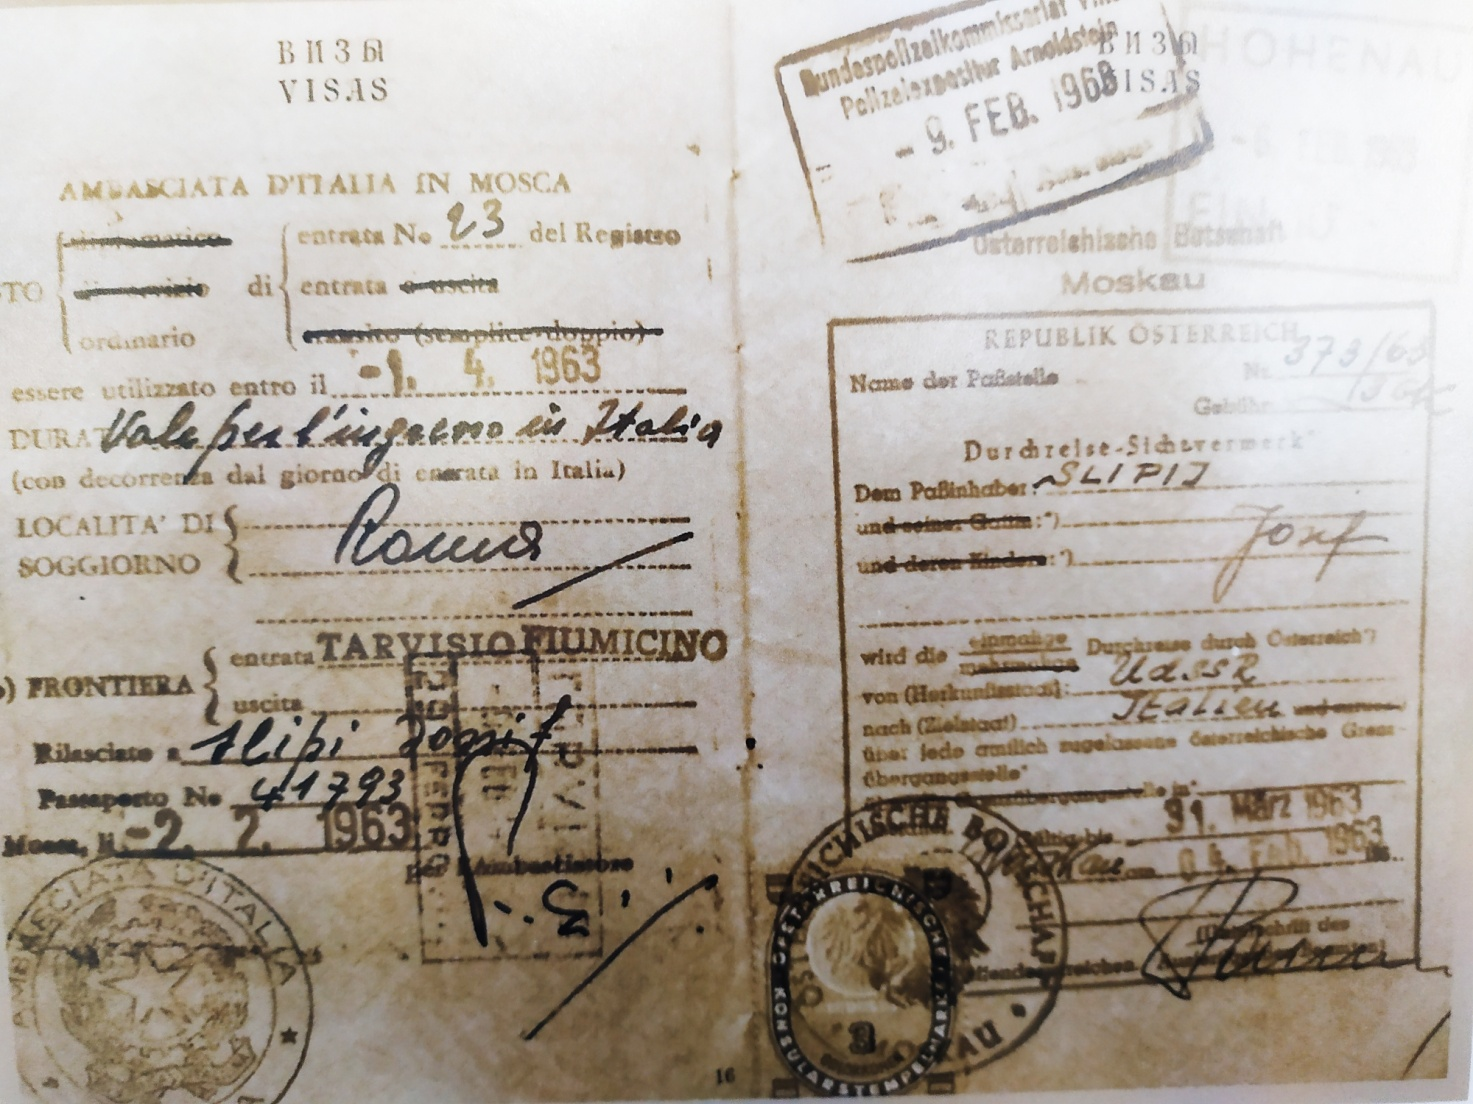 ВИЗЫ
VISAS
AMBASCIATA D'ITALIA IN MOSCA
diplomatico
entrata No 23 del Registro
TO
di servizio
di
entrata e uscita
ordinario
transito (semplice-doppio)
essere utilizzato entro il -1. 4. 1963
DURAT Vale per l'ingresso in Italia
(con decorrenza dal giorno di entrata in Italia)
LOCALITA' DI
SOGGIORNO
Roma
FRONTIERA
entrata TARVISIO FIUMICINO
uscita
Rilasciato a Slipi Josif
Passaporto No 41793
Mosca, li -2. 2. 1963
per l'Ambasciatore
AMBASCIATA D'ITALIA
16
ВИЗЫ
VISAS
Bundespolizeikommissariat
Polizeiexpositur Arnoldstein
- 9. FEB. 1963
HOHENAU
EIN
Österreichische Botschaft
Moskau
REPUBLIK ÖSTERREICH
Name der Paßstelle
Nr. 373/63
Gebühr
Durchreise-Sichtvermerk
Dem Paßinhaber: SLIPIJ
und seiner Gattin:*)
Josif
und deren Kindern:*)
wird die einmalige Durchreise durch Österreich*)
mehrmalige
von (Herkunftsstaat): UdSSR
nach (Zielstaat) Italien
über jede amtlich zugelassene österreichische Grenz-
übergangsstelle*
gültig bis 31. März 1963
Moskau am 04. Feb. 1963
(Unterschrift des
ÖSTERREICHISCHE BOTSCHAFT
MOSKAU
ÖSTERREICHISCHE
KONSULARSTEMPELMARKE
3